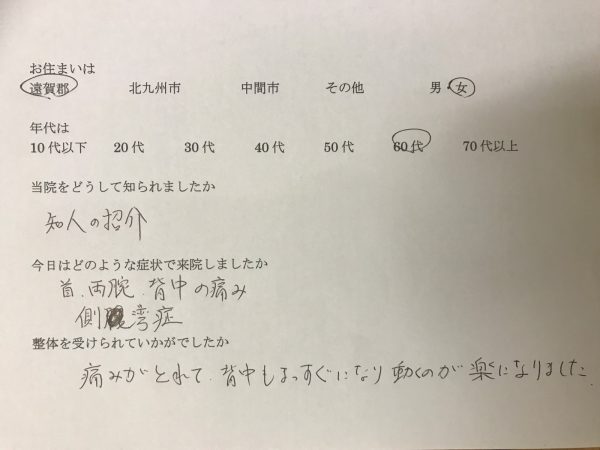 お住まいは
遠賀郡 北九州市 中間市 その他 男・女
年代は
10代以下 20代 30代 40代 50代 60代 70代以上
当院をどうして知られましたか
知人の招介
今日はどのような症状で来院しましたか
首、両腕、背中の痛み
側湾症
整体を受けられていかがでしたか
痛みがとれて、背中もまっすぐになり動くのが楽になりました